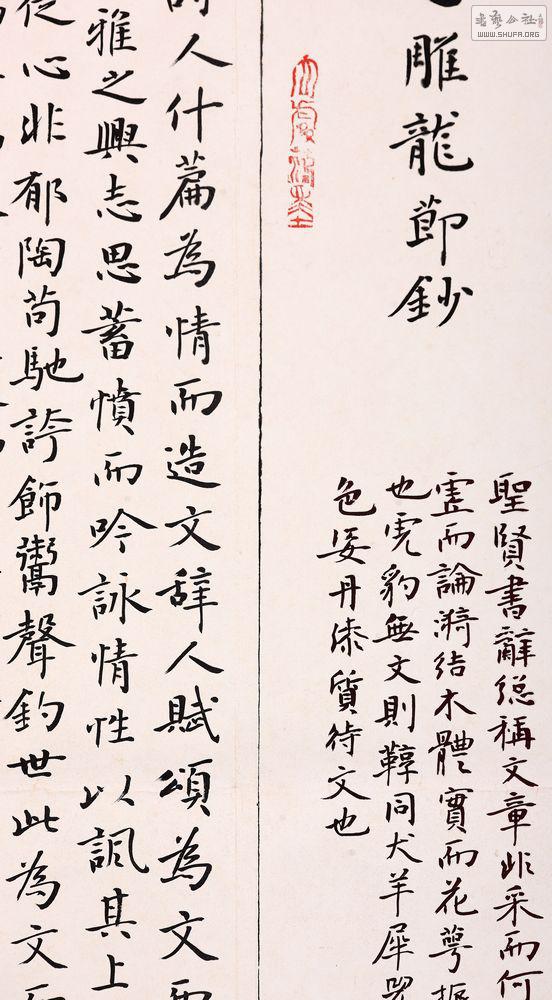 書藝公社
WWW.SHUFA.ORG
雕龍節鈔
聖賢書辭總稱文章非采而何
虛而論漪結木體實而花萼振
也虎豹無文則鞟同犬羊犀兕
色姿丹漆質待文也
詩人什篇為情而造文辭人賦頌為文而
雅之興志思蓄憤而吟詠情性以諷其上
心非郁陶苟馳誇飾鬻聲釣世此為文而